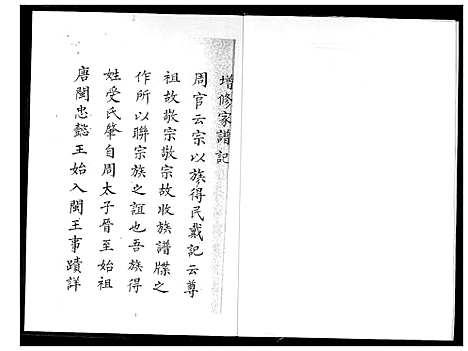 增修家譜記
周官云宗以族得民戴記云尊
祖故敬宗敬宗故收族譜牒之
作所以聯宗族之誼也吾族得
姓受氏肇自周太子晉至始祖
唐閩忠懿王始入閩王事蹟詳